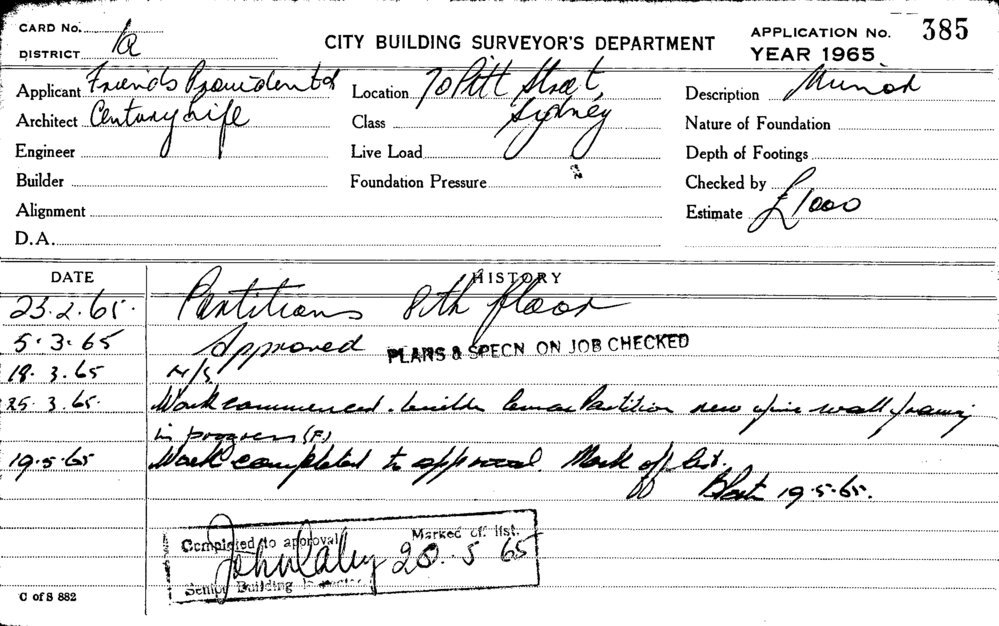 CARD No.
DISTRICT 1a
CITY BUILDING SURVEYOR'S DEPARTMENT
APPLICATION No. 385
YEAR 1965.
Applicant Friends Provident &
Architect Century Life
Engineer
Builder
Alignment
D.A.
Location 70 Pitt Street,
Class Sydney
Live Load
Foundation Pressure
Description Minor
Nature of Foundation
Depth of Footings
Checked by
Estimate £1000
DATE HISTORY
23.2.65. Partitions 8th floor
5.3.65 Approved PLANS & SPECN ON JOB CHECKED
18.3.65 N/S
25.3.65. Work commenced. builder Partition new wall framing
in progress (F)
19.5.65 Work completed to approval Mark off list.
19.5.65.
Completed to approval Marked off list.
John Daley 20.5 65
Senior Building Inspector
C of S 882